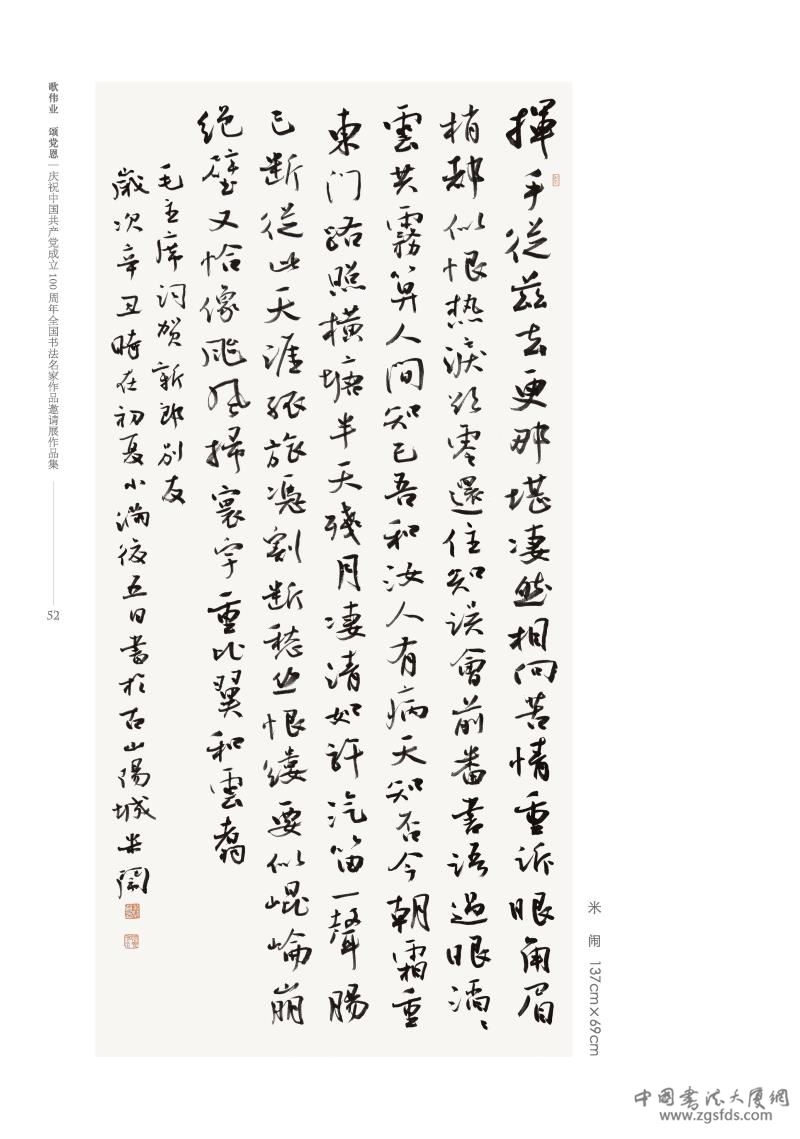 揮手從茲去更那堪凄然相向苦情重訴眼角眉
梢都似恨热淚欲零還住知误會前番書语過眼滔〻
雲共霧算人間知己吾和汝人有病天知否今朝霜重
東门路照橫塘半天殘月凄清如許汽笛一聲腸
已断從此天涯孤旅凴割断愁丝恨缕要似崐崘崩
绝壁又恰像颱风掃寰宇重比翼和雲翥
毛主席词贺新郎别友
歲次辛丑時在初夏小满後五日書於古山陽城米鬧
歌伟业 颂党恩 | 庆祝中国共产党成立100周年全国书法名家作品邀请展作品集
52
米 闹 137cm×69cm
中国书法大厦網
www.zgsfds.com